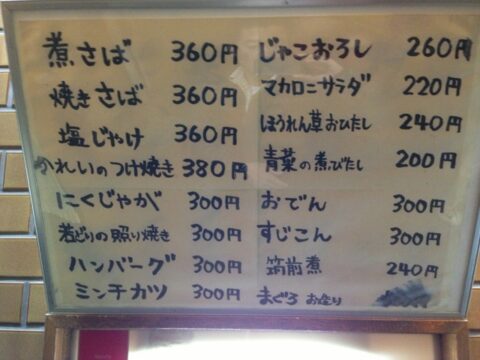 煮さば 360円
焼きさば 360円
塩じゃけ 360円
かれいのつけ焼き 380円
にくじゃが 300円
若どりの照り焼き 300円
ハンバーグ 300円
ミンチカツ 300円
じゃこおろし 260円
マカロニサラダ 220円
ほうれん草おひたし 240円
青菜の煮びたし 200円
おでん 300円
すじこん 300円
筑前煮 240円
まぐろお造り